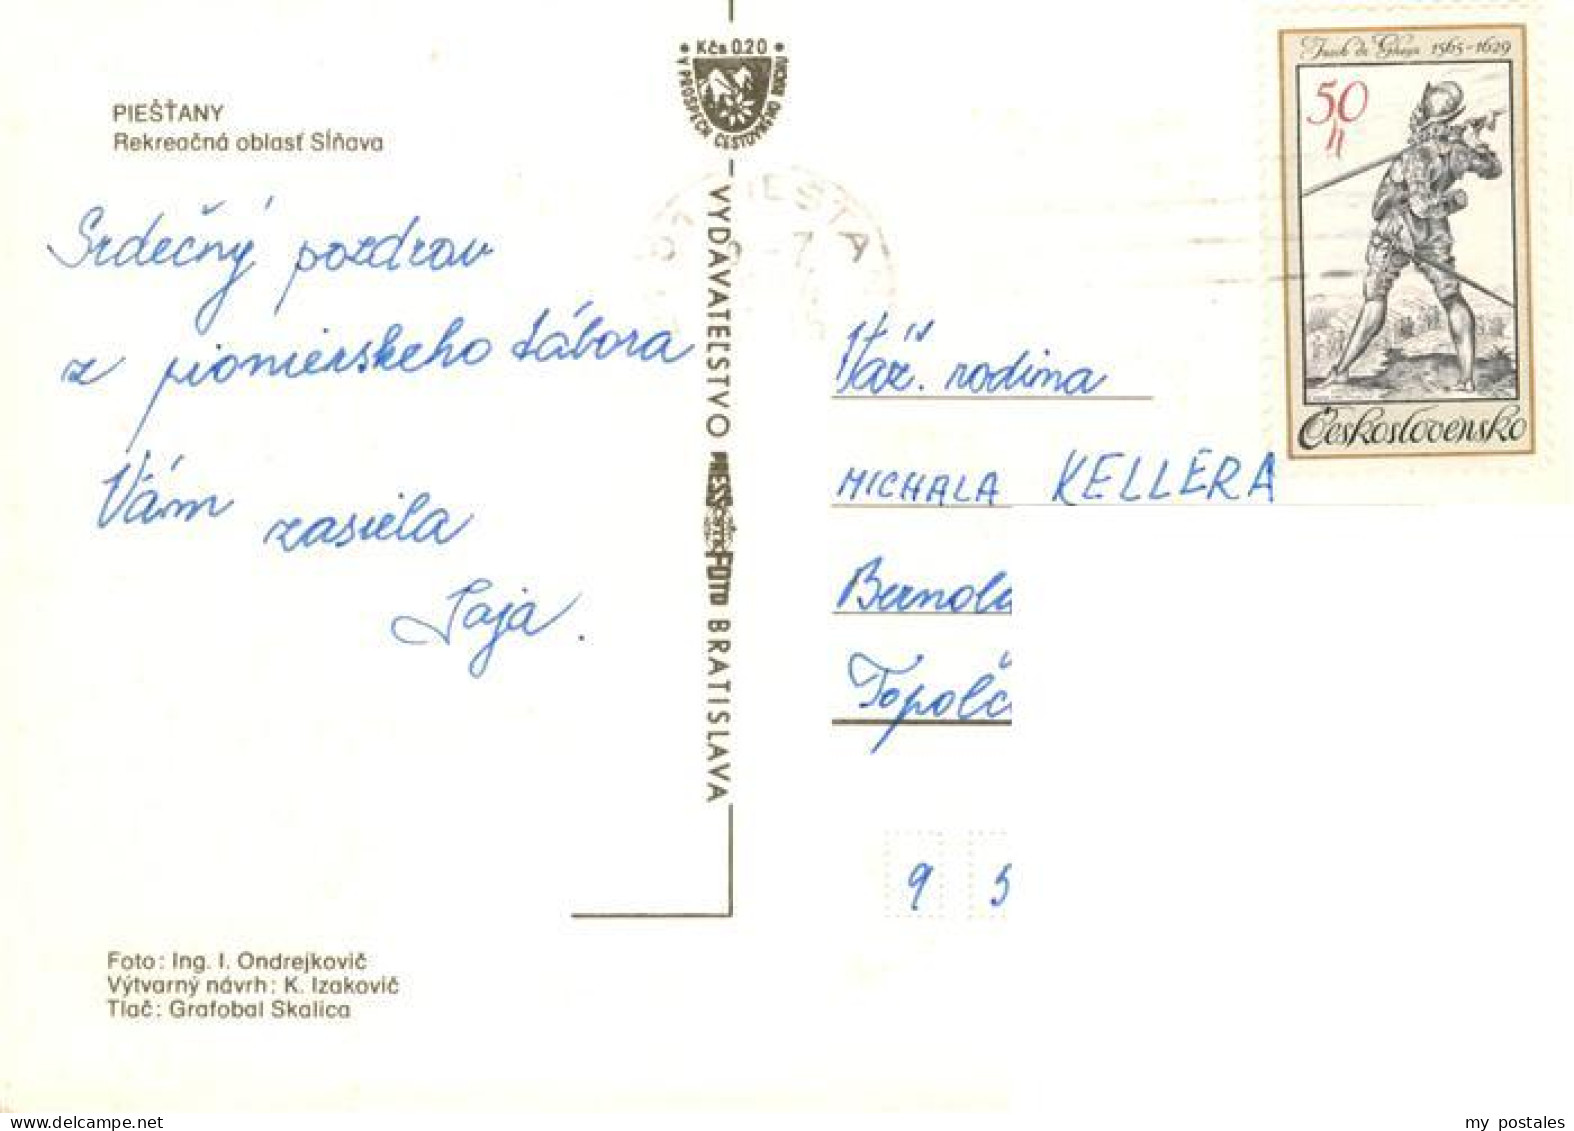 PIEŠŤANY
Rekreačná oblasť Sĺňava
Srdečný pozdrav
z pionierskeho tábora
Vám zasiela
Saja.
Foto: Ing. I. Ondrejkovič
Výtvarný návrh: K. Izakovič
Tlač: Grafobal Skalica
Kčs 0.20
V PROSPECH CESTOVNÉHO RUCHU
VYDAVATEĽSTVO PRESSFOTO BRATISLAVA
Jacob de Gheyn 1565-1629
50 h
Československo
Váž. rodina
MICHALA KELLERA
Bernolá
Topoľč
9 5
my postales